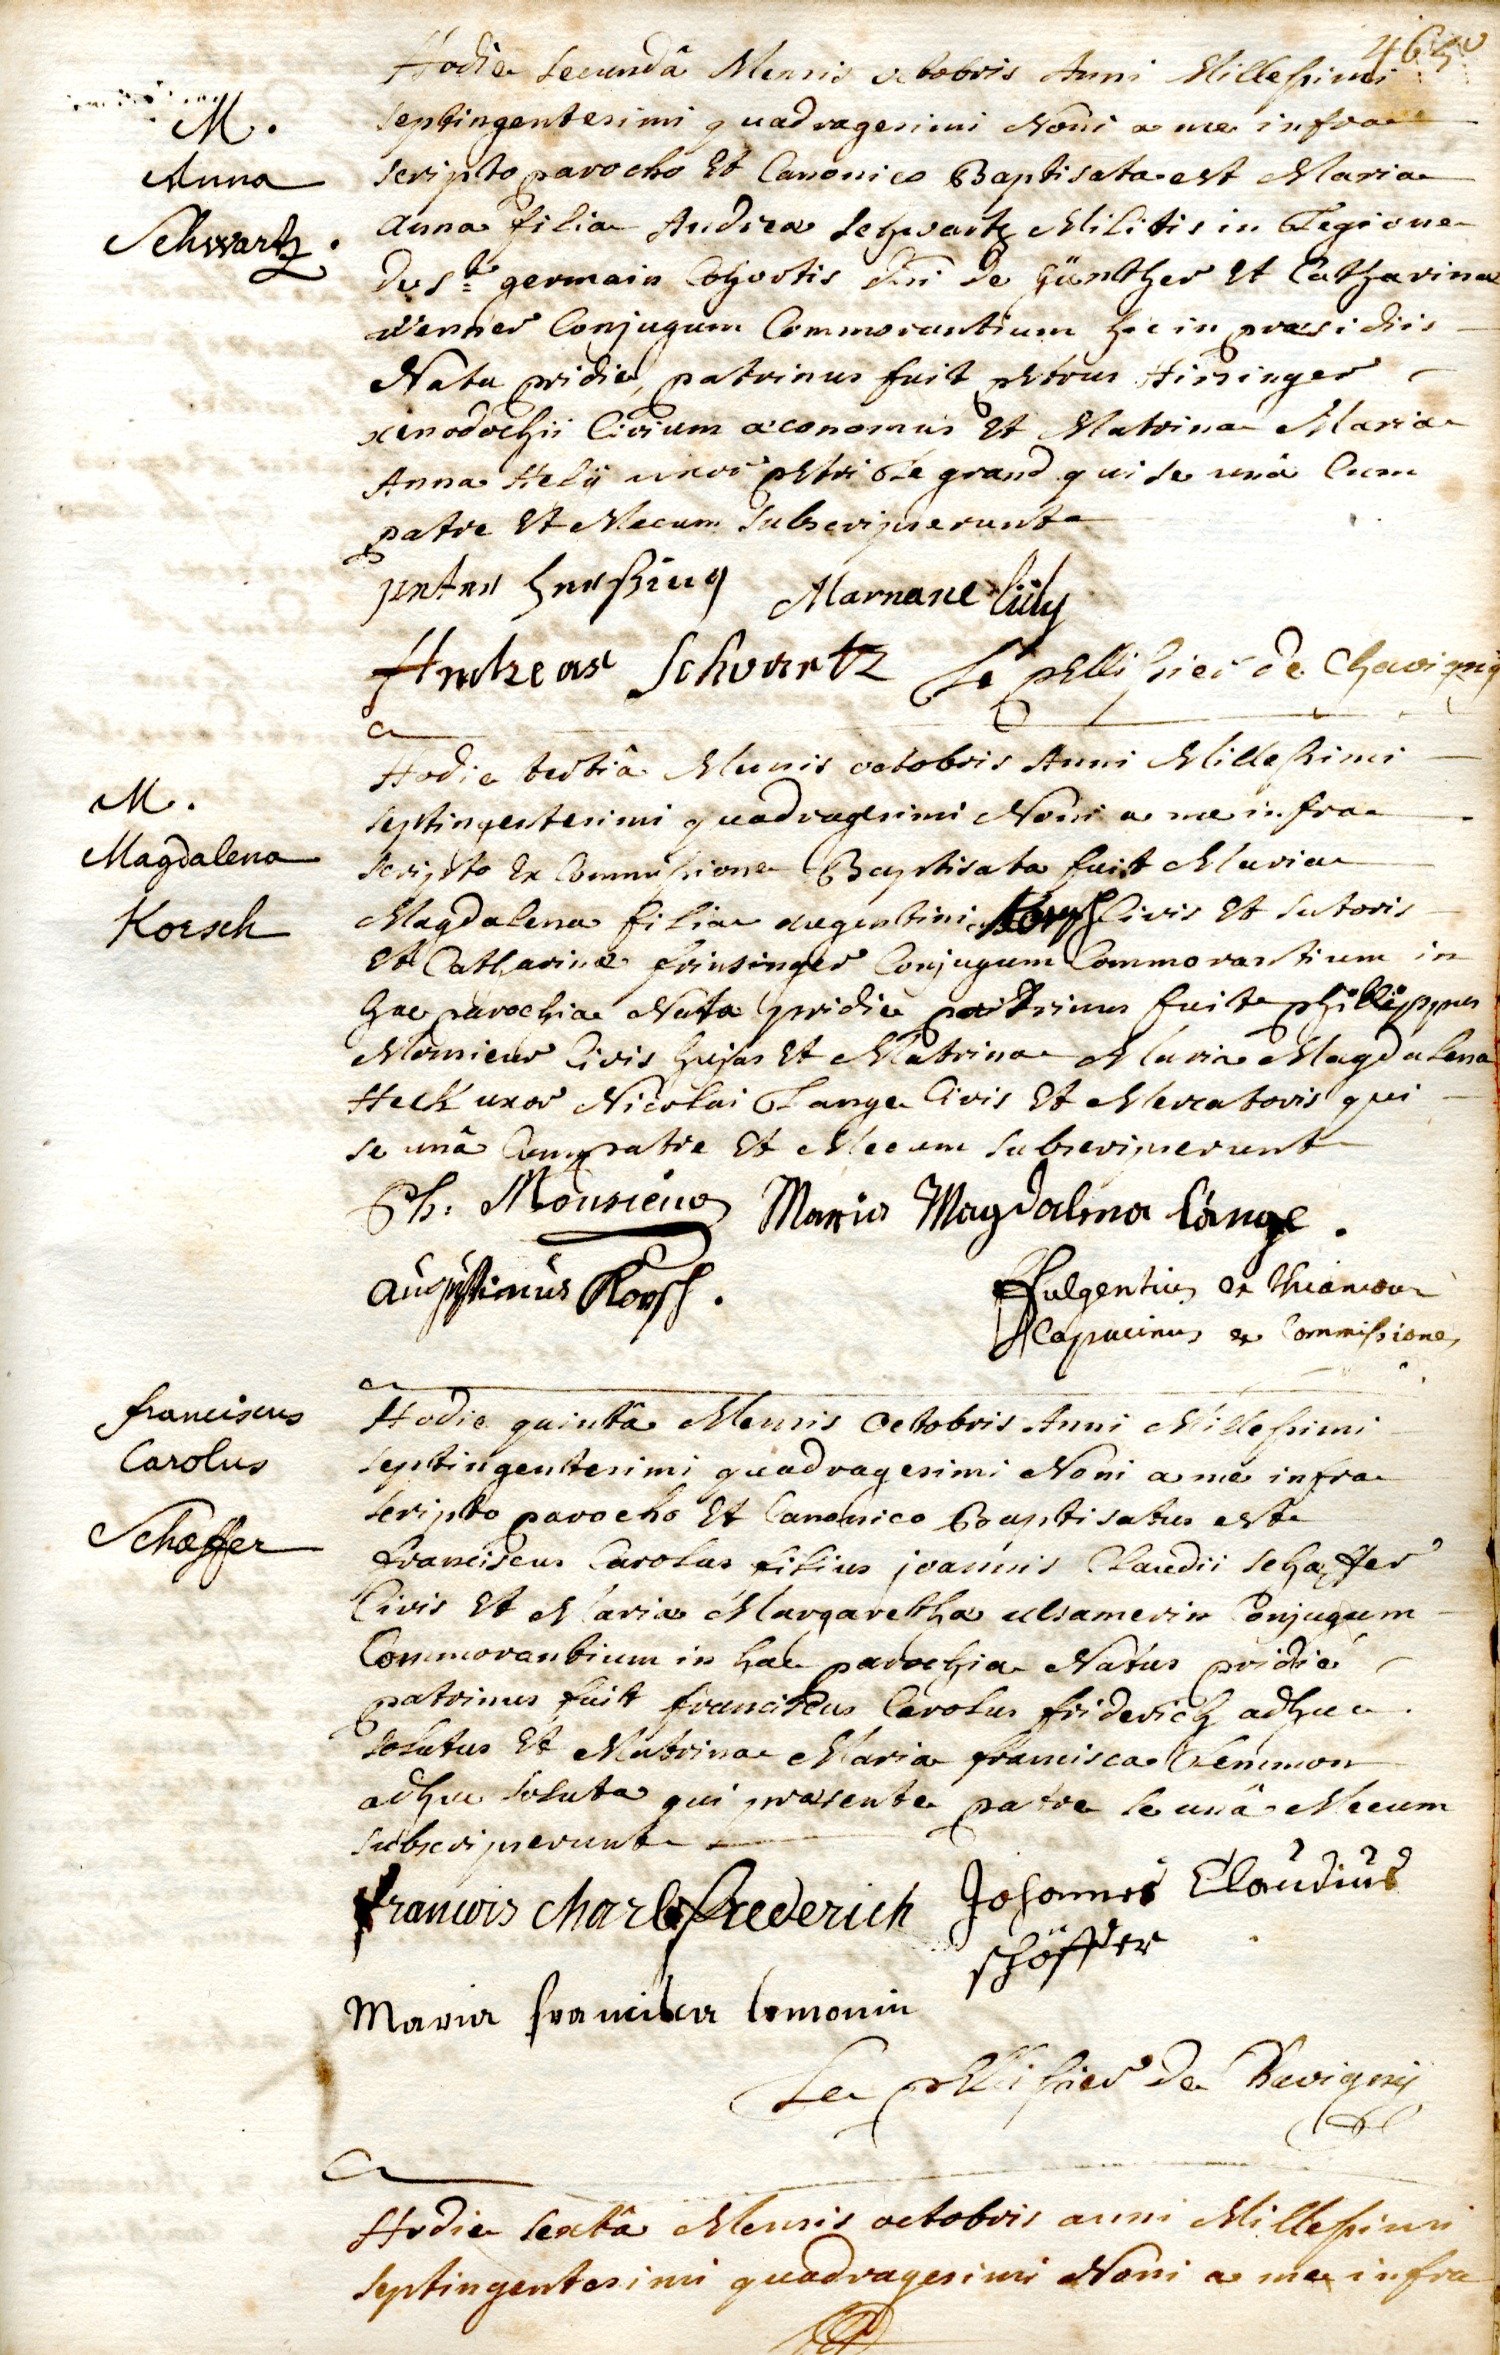 465
Hodie secundâ Mensis octobris Anni Millesimi
septingentesimi quadragesimi Noni a me infra
M.
Anna
Schwartz.
scripto parocho Et Canonico Baptisata est Maria
Anna filia Andreæ Schwartz Militis in Legione
de St germain Cohortis Dni de Günther Et Catharinæ
Wenner Conjugum Commorantium hic in præsidiis
Nata pridie, patrinus fuit petrus Hirsinger
xenodochii Civium œconomus Et Matrina Maria
Anna Helÿ uxor petri Le grand qui se unâ Cum
patre Et Mecum subscripserunt
peter
Andreas Schvartz Le pellissier de Chavigny
M.
Magdalena
Korsch
Hodie tertiâ Mensis octobris Anni Millesimi
septingentesimi quadragesimi Noni a me infra
scripto Ex Commissione Baptisata fuit Maria
Magdalena filia augustini Korsch Civis Et sutoris
Et Catharinæ frinsinger Conjugum Commorantium in
hac parochia Nata pridie patrinus fuit philippus
Monsieur Civis hujas Et Matrina Maria Magdalena
Heck uxor Nicolai Lange Civis Et Mercatoris qui
se unâ Cum patre Et Mecum subscripserunt
Ph. Monsieur Maria Magdalena Lange.
augustinus Korsch.
Fulgentius ex
Capucinus ex Commissione
franciscus
Carolus
Schæffer
Hodie quintâ Mensis Octobris Anni Millesimi
septingentesimi quadragesimi Noni a me infra
scripto parocho Et Canonico Baptisatus est
franciscus Carolus filius joannis Claudii schæffer
Civis Et Mariæ Margarethæ ulsamerin Conjugum
Commorantium in hac parochia Natus pridie
patrinus fuit franciscus Carolus friderich adhuc
solutus Et Matrina Maria francisca Lemmon
adhuc soluta qui præsente patre se unâ Mecum
subscripserunt
francois charle frederich Johannes Claudius
schöffer
Maria francisca lemonin
Le pellissier de Chavigny
Hodie sextâ Mensis octobris anni Millesimi
septingentesimi quadragesimi Noni a me infra